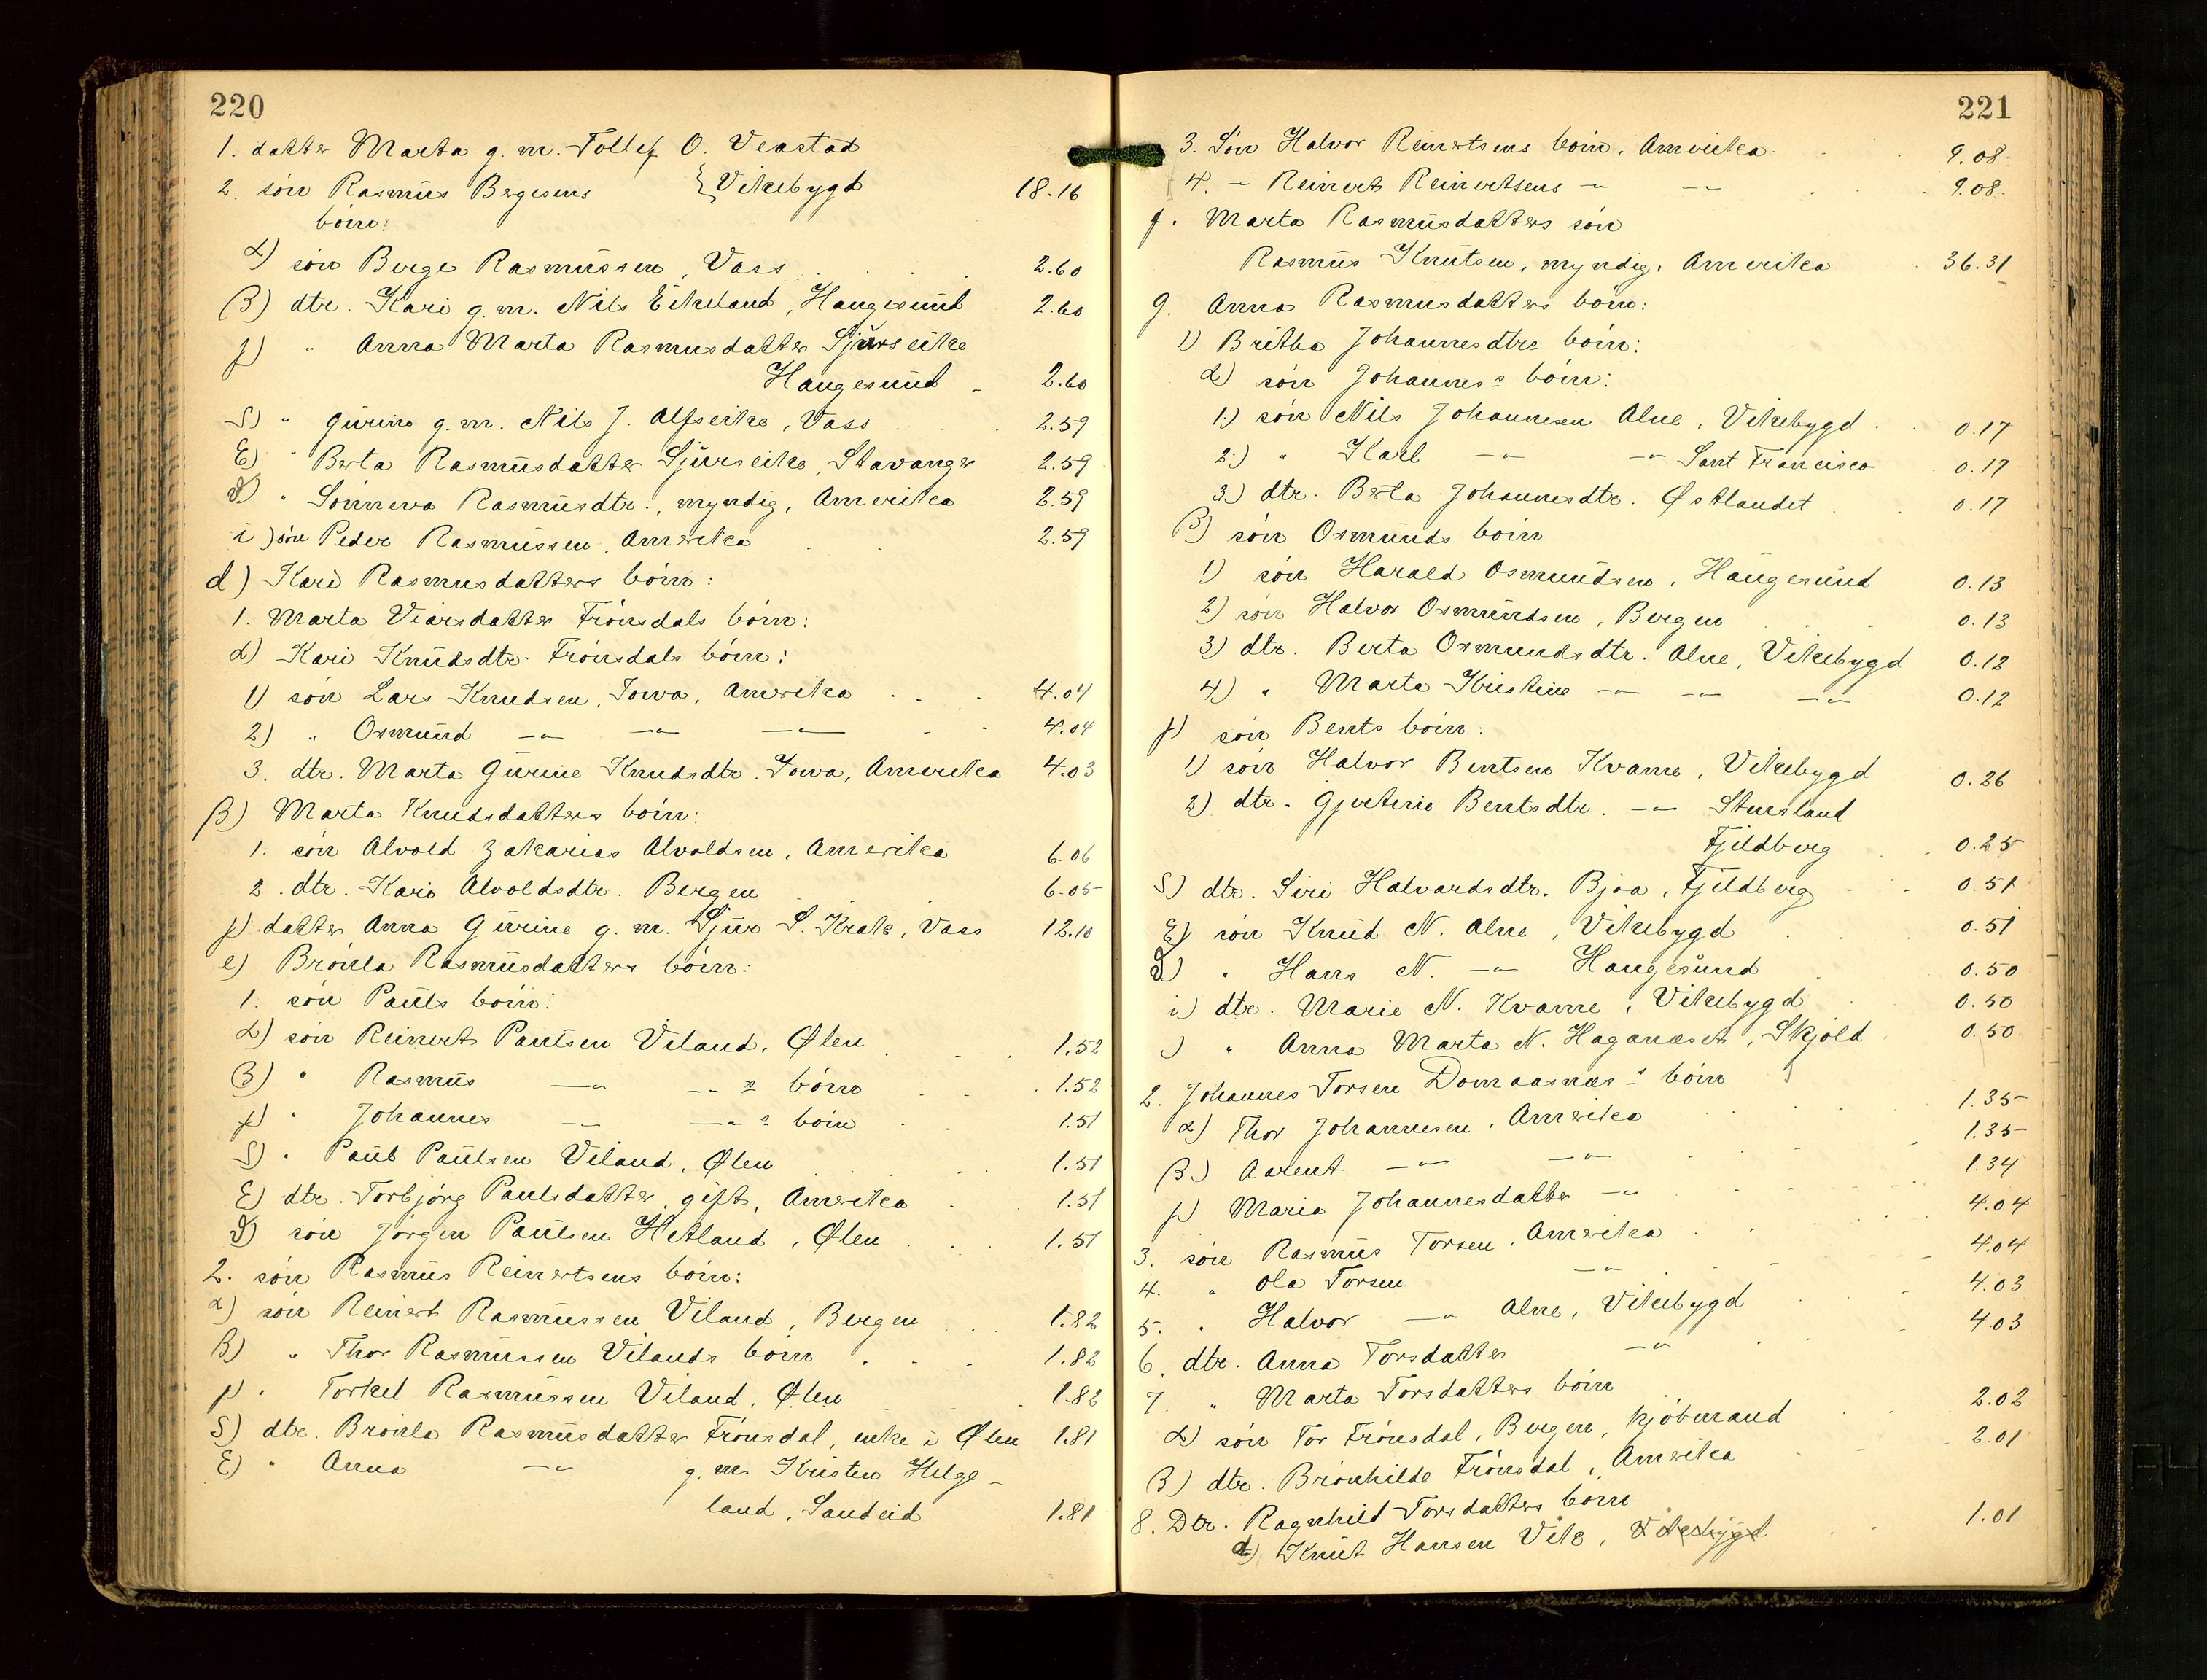 220
1. datter Marta g. m. Tollef O. Veastad
2. søn Rasmus Bergesens } Vikebygd 18.16
børn:
α) søn Berge Rasmussen, Vass 2.60
β) dtr. Kari g. m. Nils Eikeland, Haugesund 2.60
γ) " Anna Marta Rasmusdatter Sjurseike
Haugesund - 2.60
δ) " Gurine g. m. Nils J. Alfseike, Vass 2.59
ε) " Berta Rasmusdatter Sjurseike, Stavanger 2.59
ϑ) " Sønneva Rasmusdtr., myndig, Amerika 2.59
i) søn Peder Rasmussen, Amerika 2.59
d) Kari Rasmusdatters børn:
1. Marta Viarsdatter Frønsdals børn:
α) Kari Knudsdtr. Frønsdals børn:
1) søn Lars Knudsen, Iowa, Amerika 4.04
2) " Osmund -"- -"- -"- 4.04
3. dtr. Marta Gurine Knudsdtr. Iowa, Amerika 4.03
β) Marta Knudsdatters børn:
1. søn Alvold Zakarias Alvoldsen, Amerika 6.06
2. dtr. Kari Alvoldsdtr. Bergen 6.05
γ) datter Anna Gurine g. m. Sjur S. Krak, Vass 12.10
e) Brønla Rasmusdatters børn:
1. søn Pauls børn:
α) søn Reinert Paulsen Viland, Ølen 1.52
β) " Rasmus -"- -"- s børn 1.52
γ) " Johannes -"- -"- s børn 1.51
δ) " Paul Paulsen Viland, Ølen 1.51
ε) dtr. Torbjørg Paulsdatter, gift, Amerika 1.51
ϑ) søn Jørgen Paulsen Hetland, Ølen 1.51
2. søn Rasmus Reinertsens børn:
α) søn Reinert Rasmussen Viland, Bergen 1.82
β) " Thor Rasmussen Vilands børn 1.82
γ) " Torkel Rasmussen Viland, Ølen 1.82
δ) dtr. Brønla Rasmusdatter Frønsdal, enke i Ølen 1.81
ε) " Anna -"- g. m. Kristen Helge-
land, Sandeid 1.81
221
3. Søn Halvor Reinertsens børn, Amerika 9.08
4. - Reinert Reinertsens -"- -"- 9.08
f. Marta Rasmusdatters søn
Rasmus Knutsen, myndig, Amerika 36.31
g. Anna Rasmusdatters børn:
1) Britha Johannesdtrs børn:
α) søn Johannes's børn:
1.) søn Nils Johannesen Alne, Vikebygd 0.17
2.) " Karl -"- -"- Sant Francisco 0.17
3.) dtr. Berta Johannesdtr. Østlandet 0.17
β) søn Osmunds børn
1) søn Harald Osmundsen, Haugesund 0.13
2) søn Halvor Osmundsen, Bergen 0.13
3) dtr. Berta Osmundsdtr. Alne, Vikebygd 0.12
4) " Marta Kristine -"- -"- -"- 0.12
γ) søn Bents børn:
1) søn Halvor Bentsen Kvame, Vikebygd 0.26
2) dtr. Gjertine Bentsdtr. -"- Stursland
Fjeldberg 0.25
δ) dtr. Siri Halvardsdtr. Bjoa, Fjeldberg 0.51
ε) søn Knud N. Alne, Vikebygd 0.51
ϑ) " Hans N. -"- Haugesund 0.50
i) dtr. Marie N. Kvame, Vikebygd 0.50
j) " Anna Marta N. Haganæset, Skjold 0.50
2. Johannes Torsen Domaasnæs's børn
α) Thor Johannesen, Amerika 1.35
β.) Aarent -"- -"- 1.35
γ) Maria Johannesdatter -"- 1.34
3. søn Rasmus Torsen, Amerika 4.04
4. " Ola Torsen -"- 4.04
5. " Halvor -"- Alne, Vikebygd 4.03
6. dtr. Anna Torsdatter -"- 4.03
7. " Marta Torsdatters børn
α) søn Tor Frønsdal, Bergen, kjøbmand 2.02
β) dtr. Brønhilde Frønsdal, Amerika 2.01
8. Dtr. Ragnhild Torsdatters børn
α) Knut Hansen Vik, Vikebygd 1.01